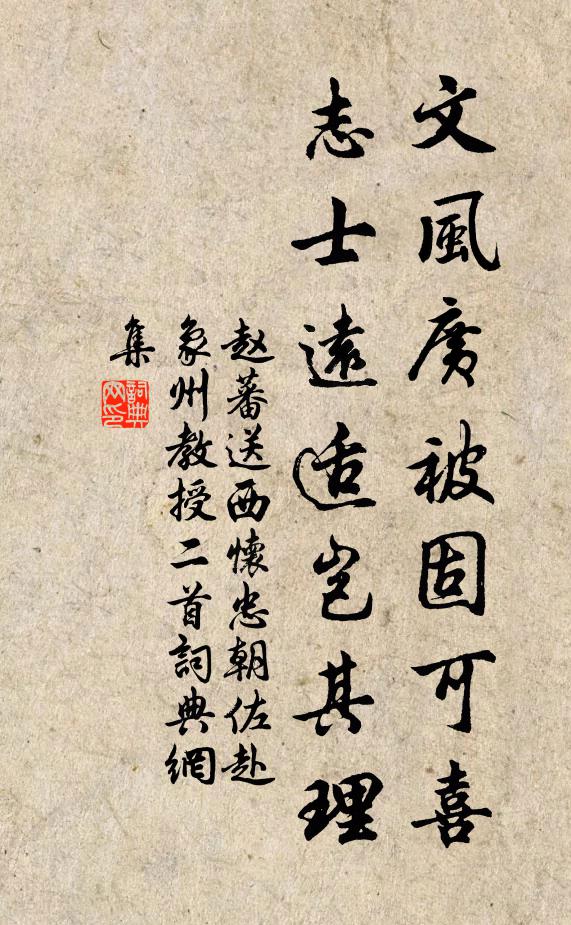 文風廣被固可喜
志士遠适豈其理
赵蕃送西懷忠朝佐赴
象州教授二首詞典網
集
詞典
网印